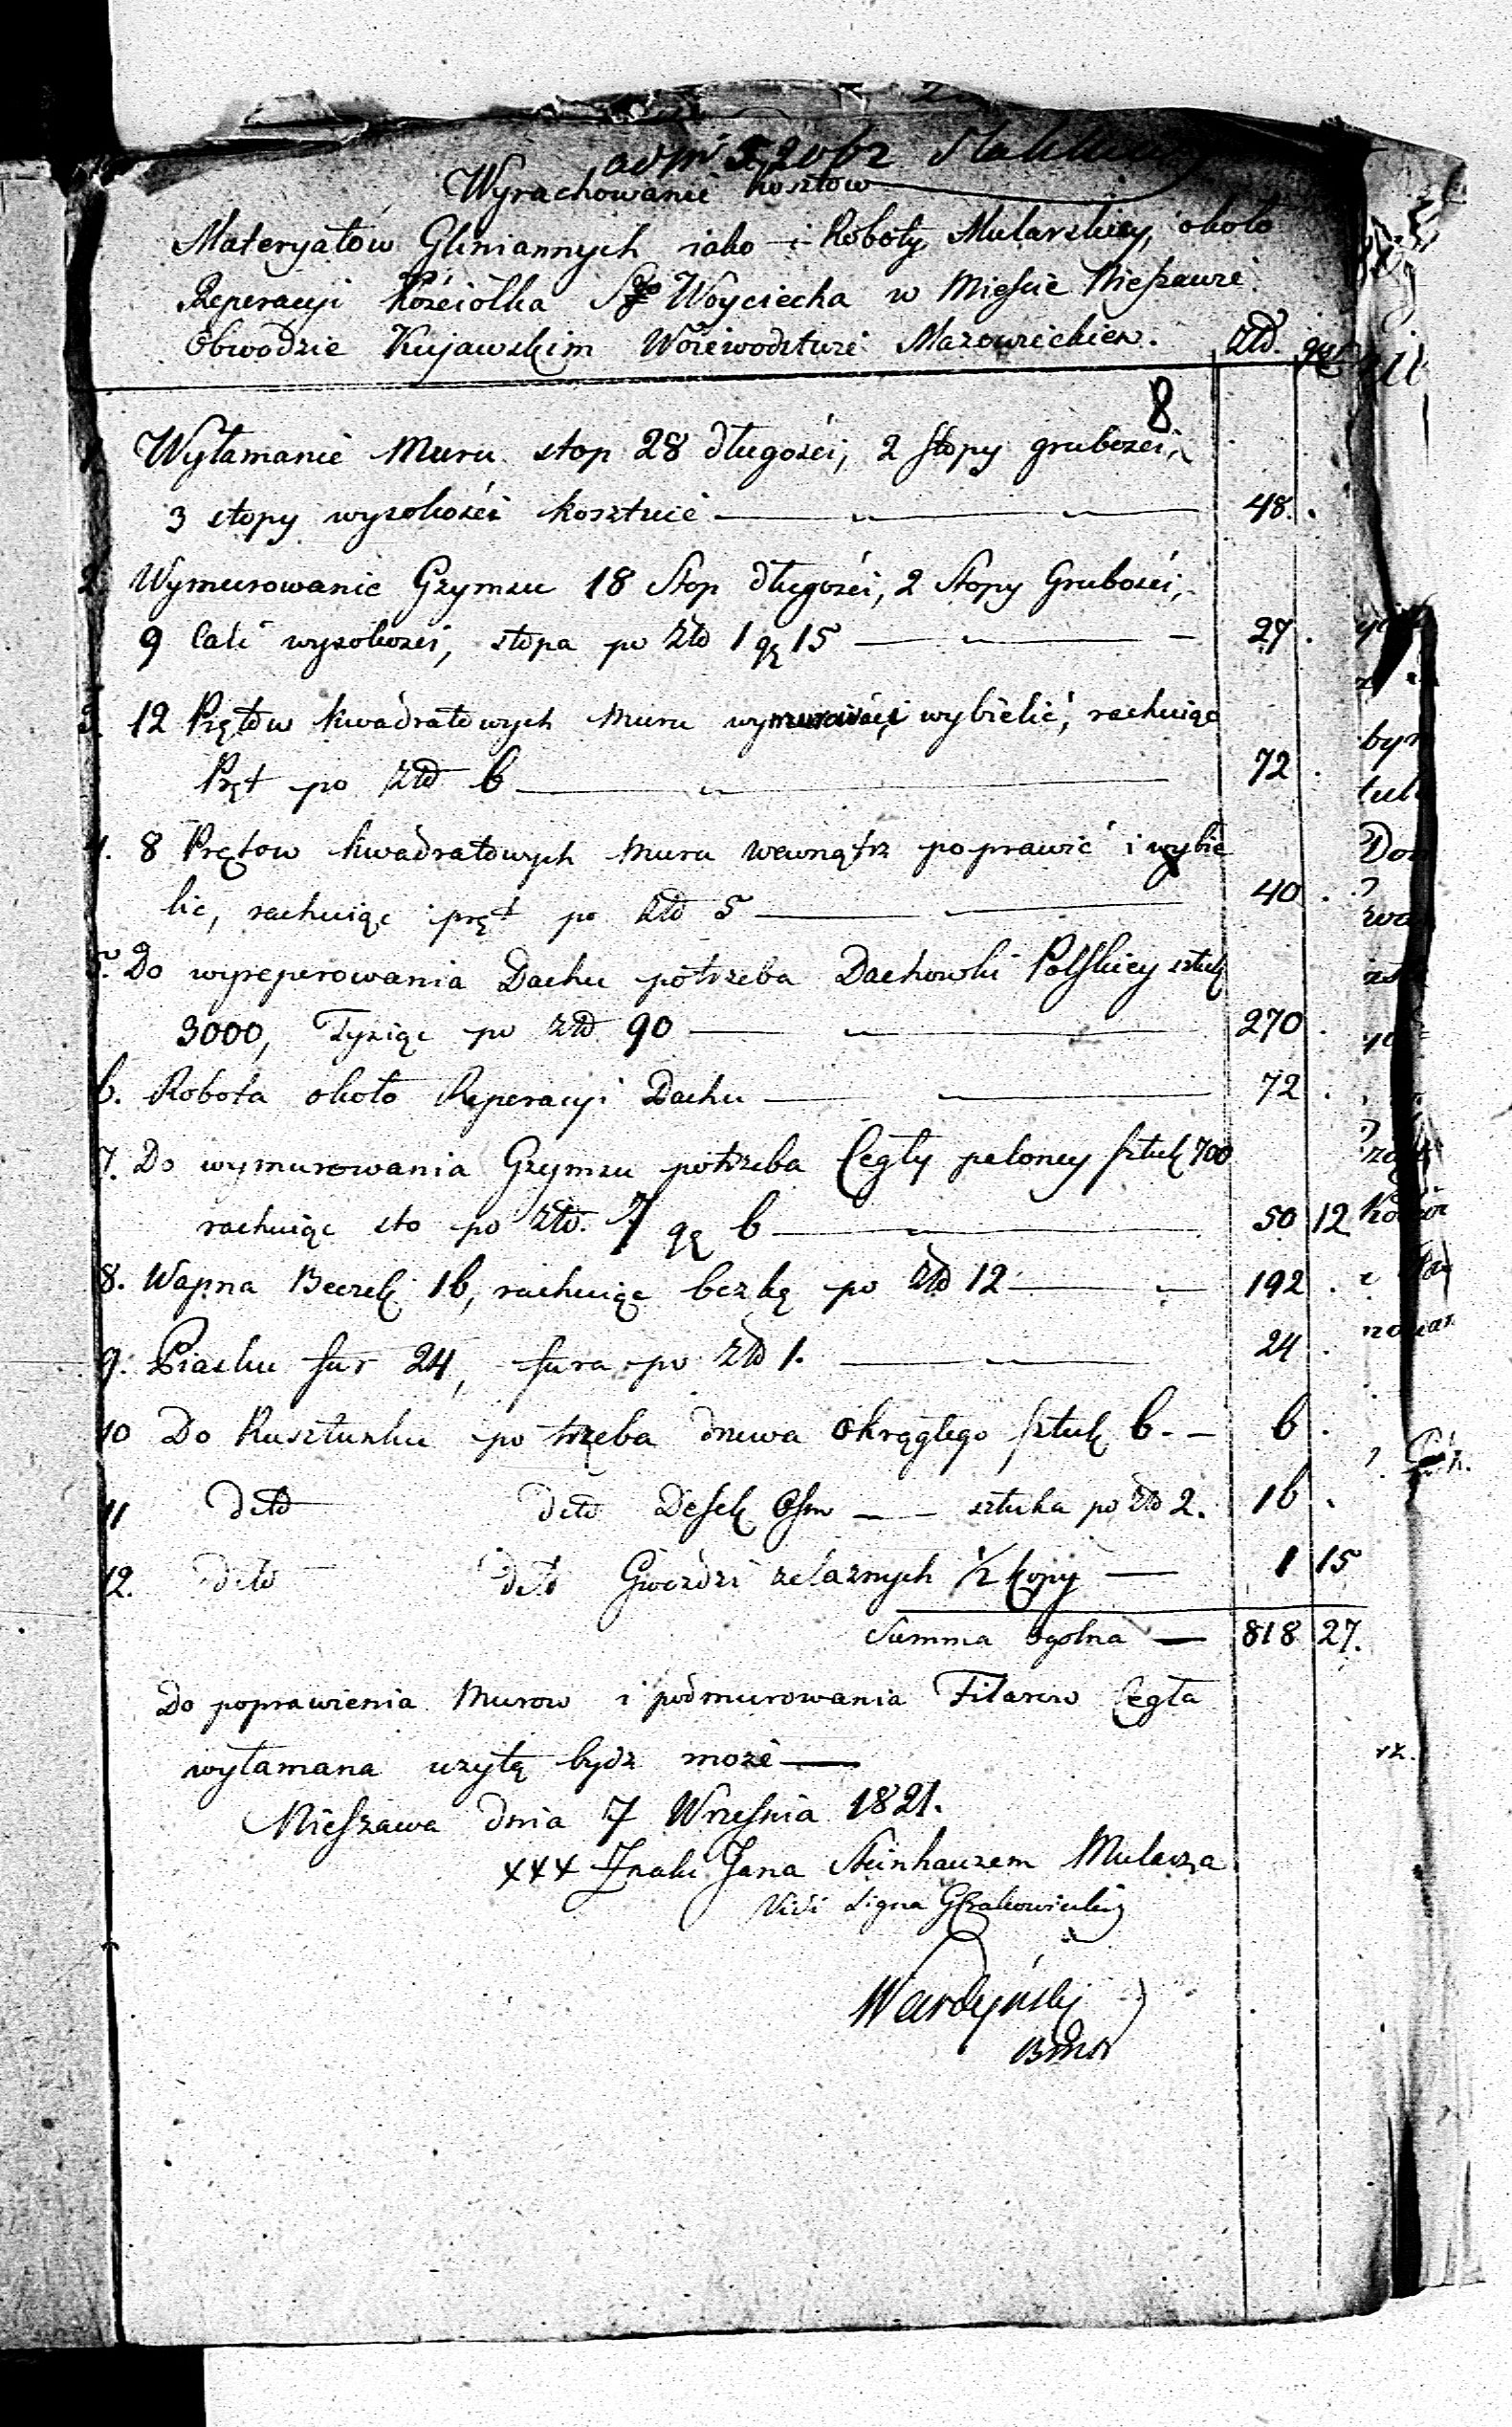 Wyrachowanie Kosztow
Materyałow Gliniannych iako i Roboty Mularskiey, około
Reperacyi Kościołka Sgo Woyciecha w Mieście Nieszawie
Obwodzie Kujawskim Woiewodztwie Mazowieckiem. złł. gr
8
1 Wyłamanie Muru stop 28 długości, 2 stopy grubości,
3 stopy wysokości kosztuie — „ — „ — 48. .
2 Wymurowanie Gzymsu 18 Stop długości, 2 Stopy Grubości,
9 Cali wysokości, stopa po złł 1 gr 15 — „ — 27 .
3. 12 Prętow kwadratowych muru wy i wybielić, rachuiąc
Pręt po złł 6 — „ — 72 .
4. 8 Prętow kwadratowych muru wewnątrz poprawić i wybie
lić, rachuiąc pręt po złł 5 — „ — 40 .
5. Do wyreperowania Dachu potrzeba Dachowki Polskiey sztuk
3000, Tysiąc po złł 90 — „ — 270 .
6. Robota około Reperacyi Dachu — „ — 72 .
7. Do wymurowania Gzymsu potrzeba Cegły paloney sztuk 700
rachuiąc sto po złł. 7 gr 6 — „ — 50 12
8. Wapna Beczek 16, rachuiąc beczkę po złł 12 — „ — 192 .
9. Piasku fur 24, fura po złł 1. — „ — 24 .
10 Do Rusztunku potrzeba drzewa okrągłego sztuk 6. — 6 .
11 detto detto Desek Osm — „ — sztuka po złł 2. 16 .
12. detto detto Gwoździ żelaznych 1/2 kopy — 1 15
Summa ogolna — 818 27.
Do poprawienia Murow i podmurowania Filarow Cegła
wyłamana użytą bydz może —
Nieszawa dnia 7 Września 1821.
+++ Znaki Jana Steinhauzem Mularza
Vidi Signa
Wardyński